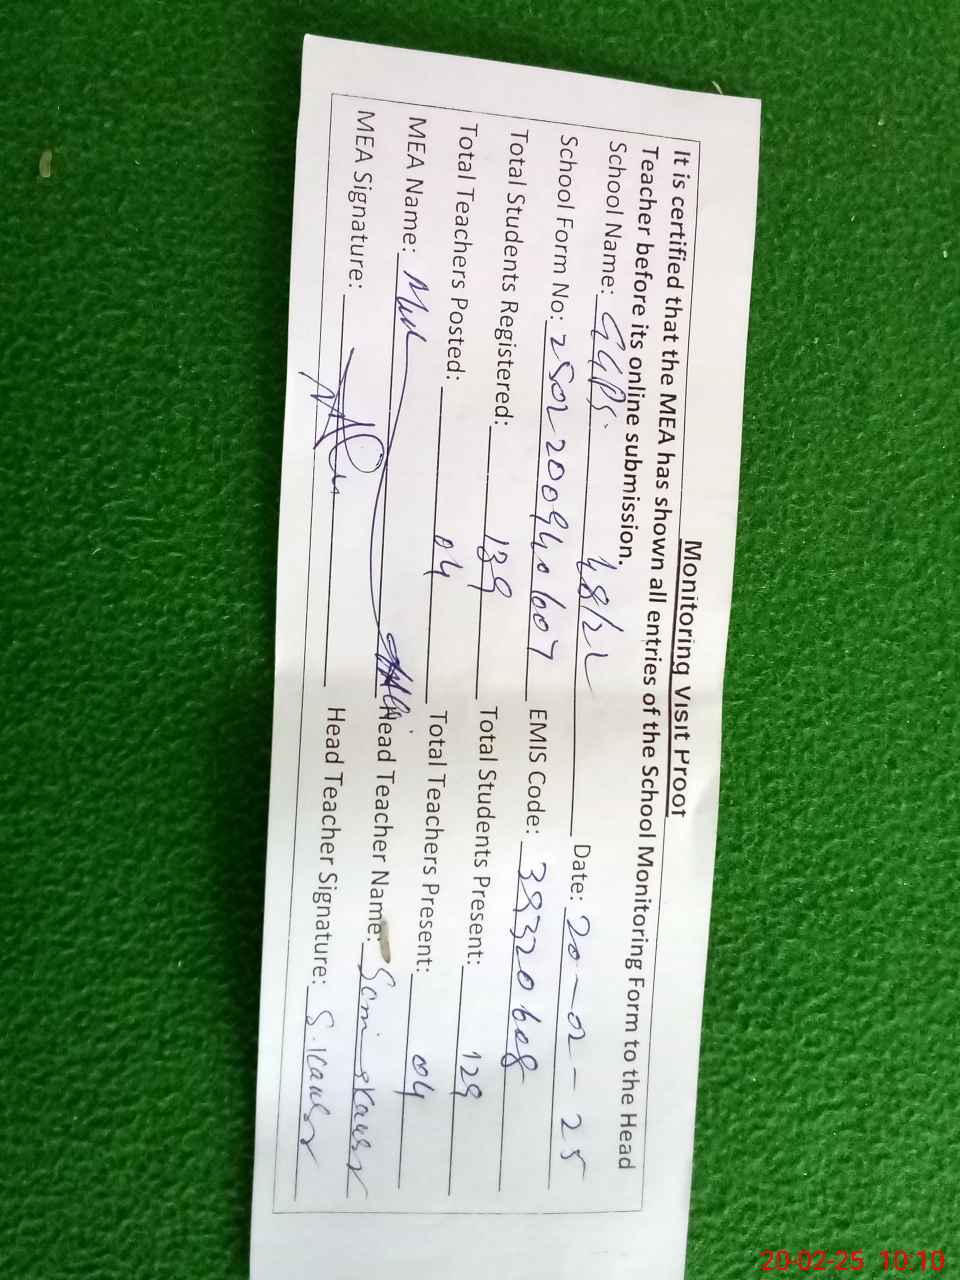 Monitoring Visit Proof
It is certified that the MEA has shown all entries of the School Monitoring Form to the Head
Teacher before its online submission.
School Name: GGPS. 48/2L Date: 20-02-25
School Form No: 2502200940607 EMIS Code: 39320608
Total Students Registered: 139 Total Students Present: 129
Total Teachers Posted: 04 Total Teachers Present: 04
MEA Name: Head Teacher Name:
MEA Signature: Head Teacher Signature: S.Kausar
20-02-25 10:10